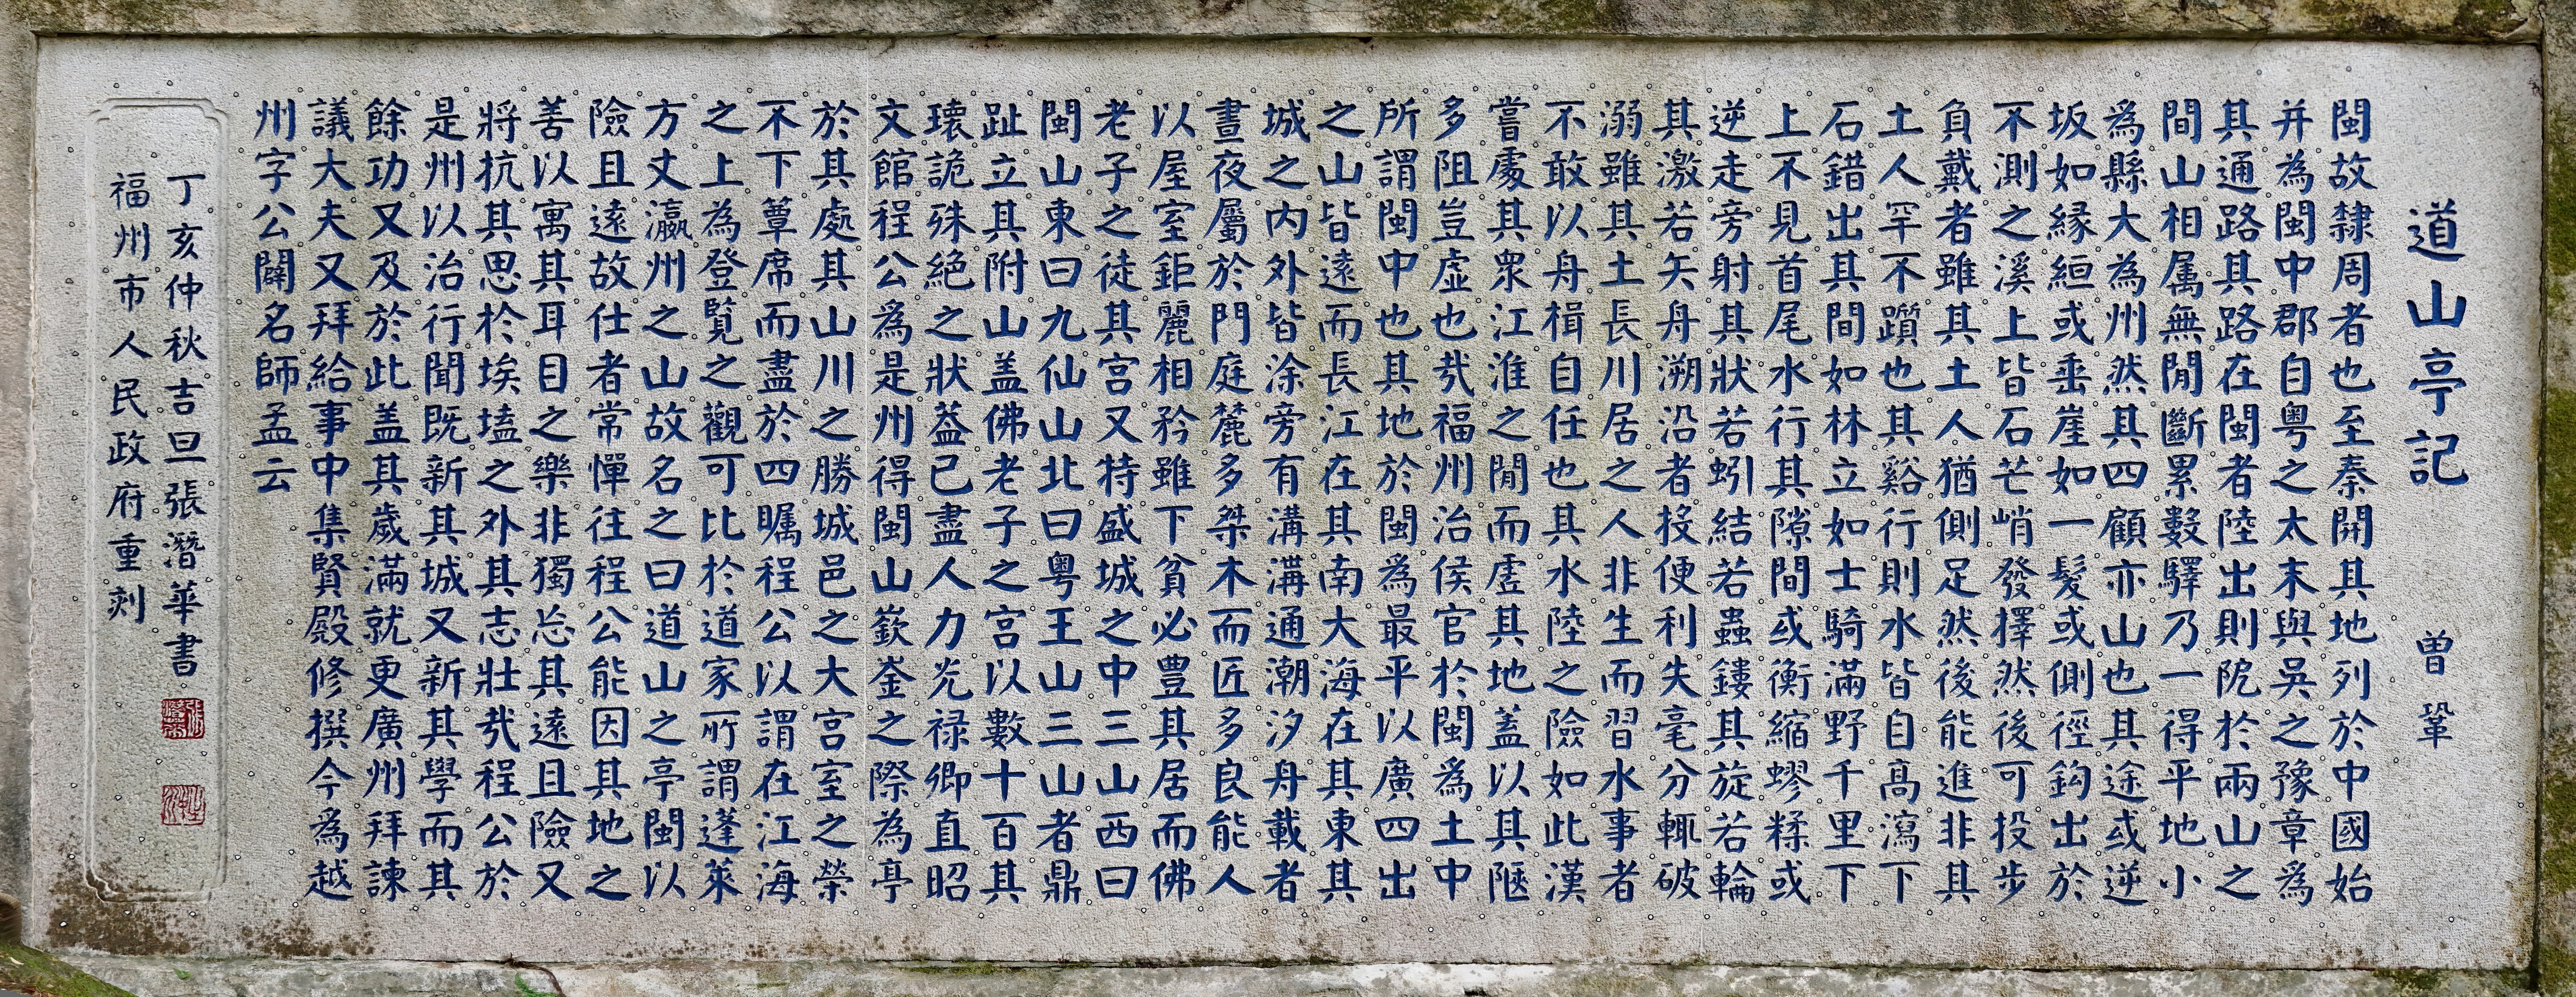 道山亭記 曾鞏
閩故隸周者也至秦開其地列於中國始
并為閩中郡自粵之太末與吳之豫章為
其通路其路在閩者陸出則阸於兩山之
間山相属無間斷累數驛乃一得平地小
為縣大為州然其四顧亦山也其途或逆
坂如緣絙或垂崖如一髮或側徑鈎出於
不測之溪上皆石芒峭發擇然後可投步
負戴者雖其土人猶側足然後能進非其
土人罕不躓也其谿行則水皆自高瀉下
石錯出其間如林立如士騎滿野千里下
上不見首尾水行其隙間或衡縮蟉糅或
逆走旁射其狀若蚓結若蟲鏤其旋若輪
其激若矢舟溯沿者投便利失毫分輒破
溺雖其土長川居之人非生而習水事者
不敢以舟楫自任也其水陸之險如此漢
嘗處其衆江淮之間而虛其地蓋以其陿
多阻豈虛也哉福州治侯官於閩為土中
所謂閩中也其地於閩為最平以廣四出
之山皆遠而長江在其南大海在其東其
城之内外皆涂旁有溝溝通潮汐舟載者
晝夜屬於門庭麓多桀木而匠多良能人
以屋室鉅麗相矜雖下貧必豐其居而佛
老子之徒其宫又特盛城之中三山西曰
閩山東曰九仙山北曰粵王山三山者鼎
趾立其附山盖佛老子之宫以數十百其
瓌詭殊絕之狀葢已盡人力光禄卿直昭
文館程公為是州得閩山嶔崟之際為亭
於其處其山川之勝城邑之大宫室之榮
不下簟席而盡於四矚程公以謂在江海
之上為登覽之觀可比於道家所謂蓬萊
方丈瀛州之山故名之曰道山之亭閩以
險且遠故仕者常憚往程公能因其地之
善以寓其耳目之樂非獨忘其遠且險又
將抗其思於埃壒之外其志壯哉程公於
是州以治行聞既新其城又新其學而其
餘功又及於此盖其歲滿就更廣州拜諫
議大夫又拜給事中集賢殿修撰今為越
州字公闢名師孟云
丁亥仲秋吉旦張潛華書
福州市人民政府重刻